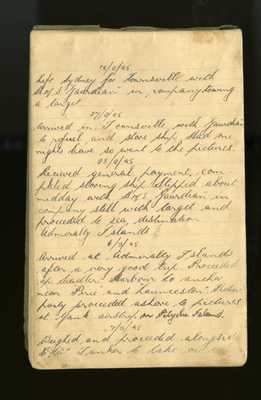 Left Sydney for Townsville with
H.M.S. "Guardian" in company towing
a target.
Arrived in Townsville with Guardian
to refuel and store ship. Had one
nights leave so went to the pictures.
Received general payment, com-
pleted storing ship. Slipped about
midday with H.M.S. Guardian in
company still with target and
proceeded to sea, destination
Admiralty Islands
Arrived at Admiralty Islands
after a very good trip. Proceeded
up Seadler Harbour to anchor
near Pirie and Launceston.
party proceeded ashore to pictures
at Yank airstrip on Pityilu Island.
Weighed and proceeded alongside
Tanker to take on